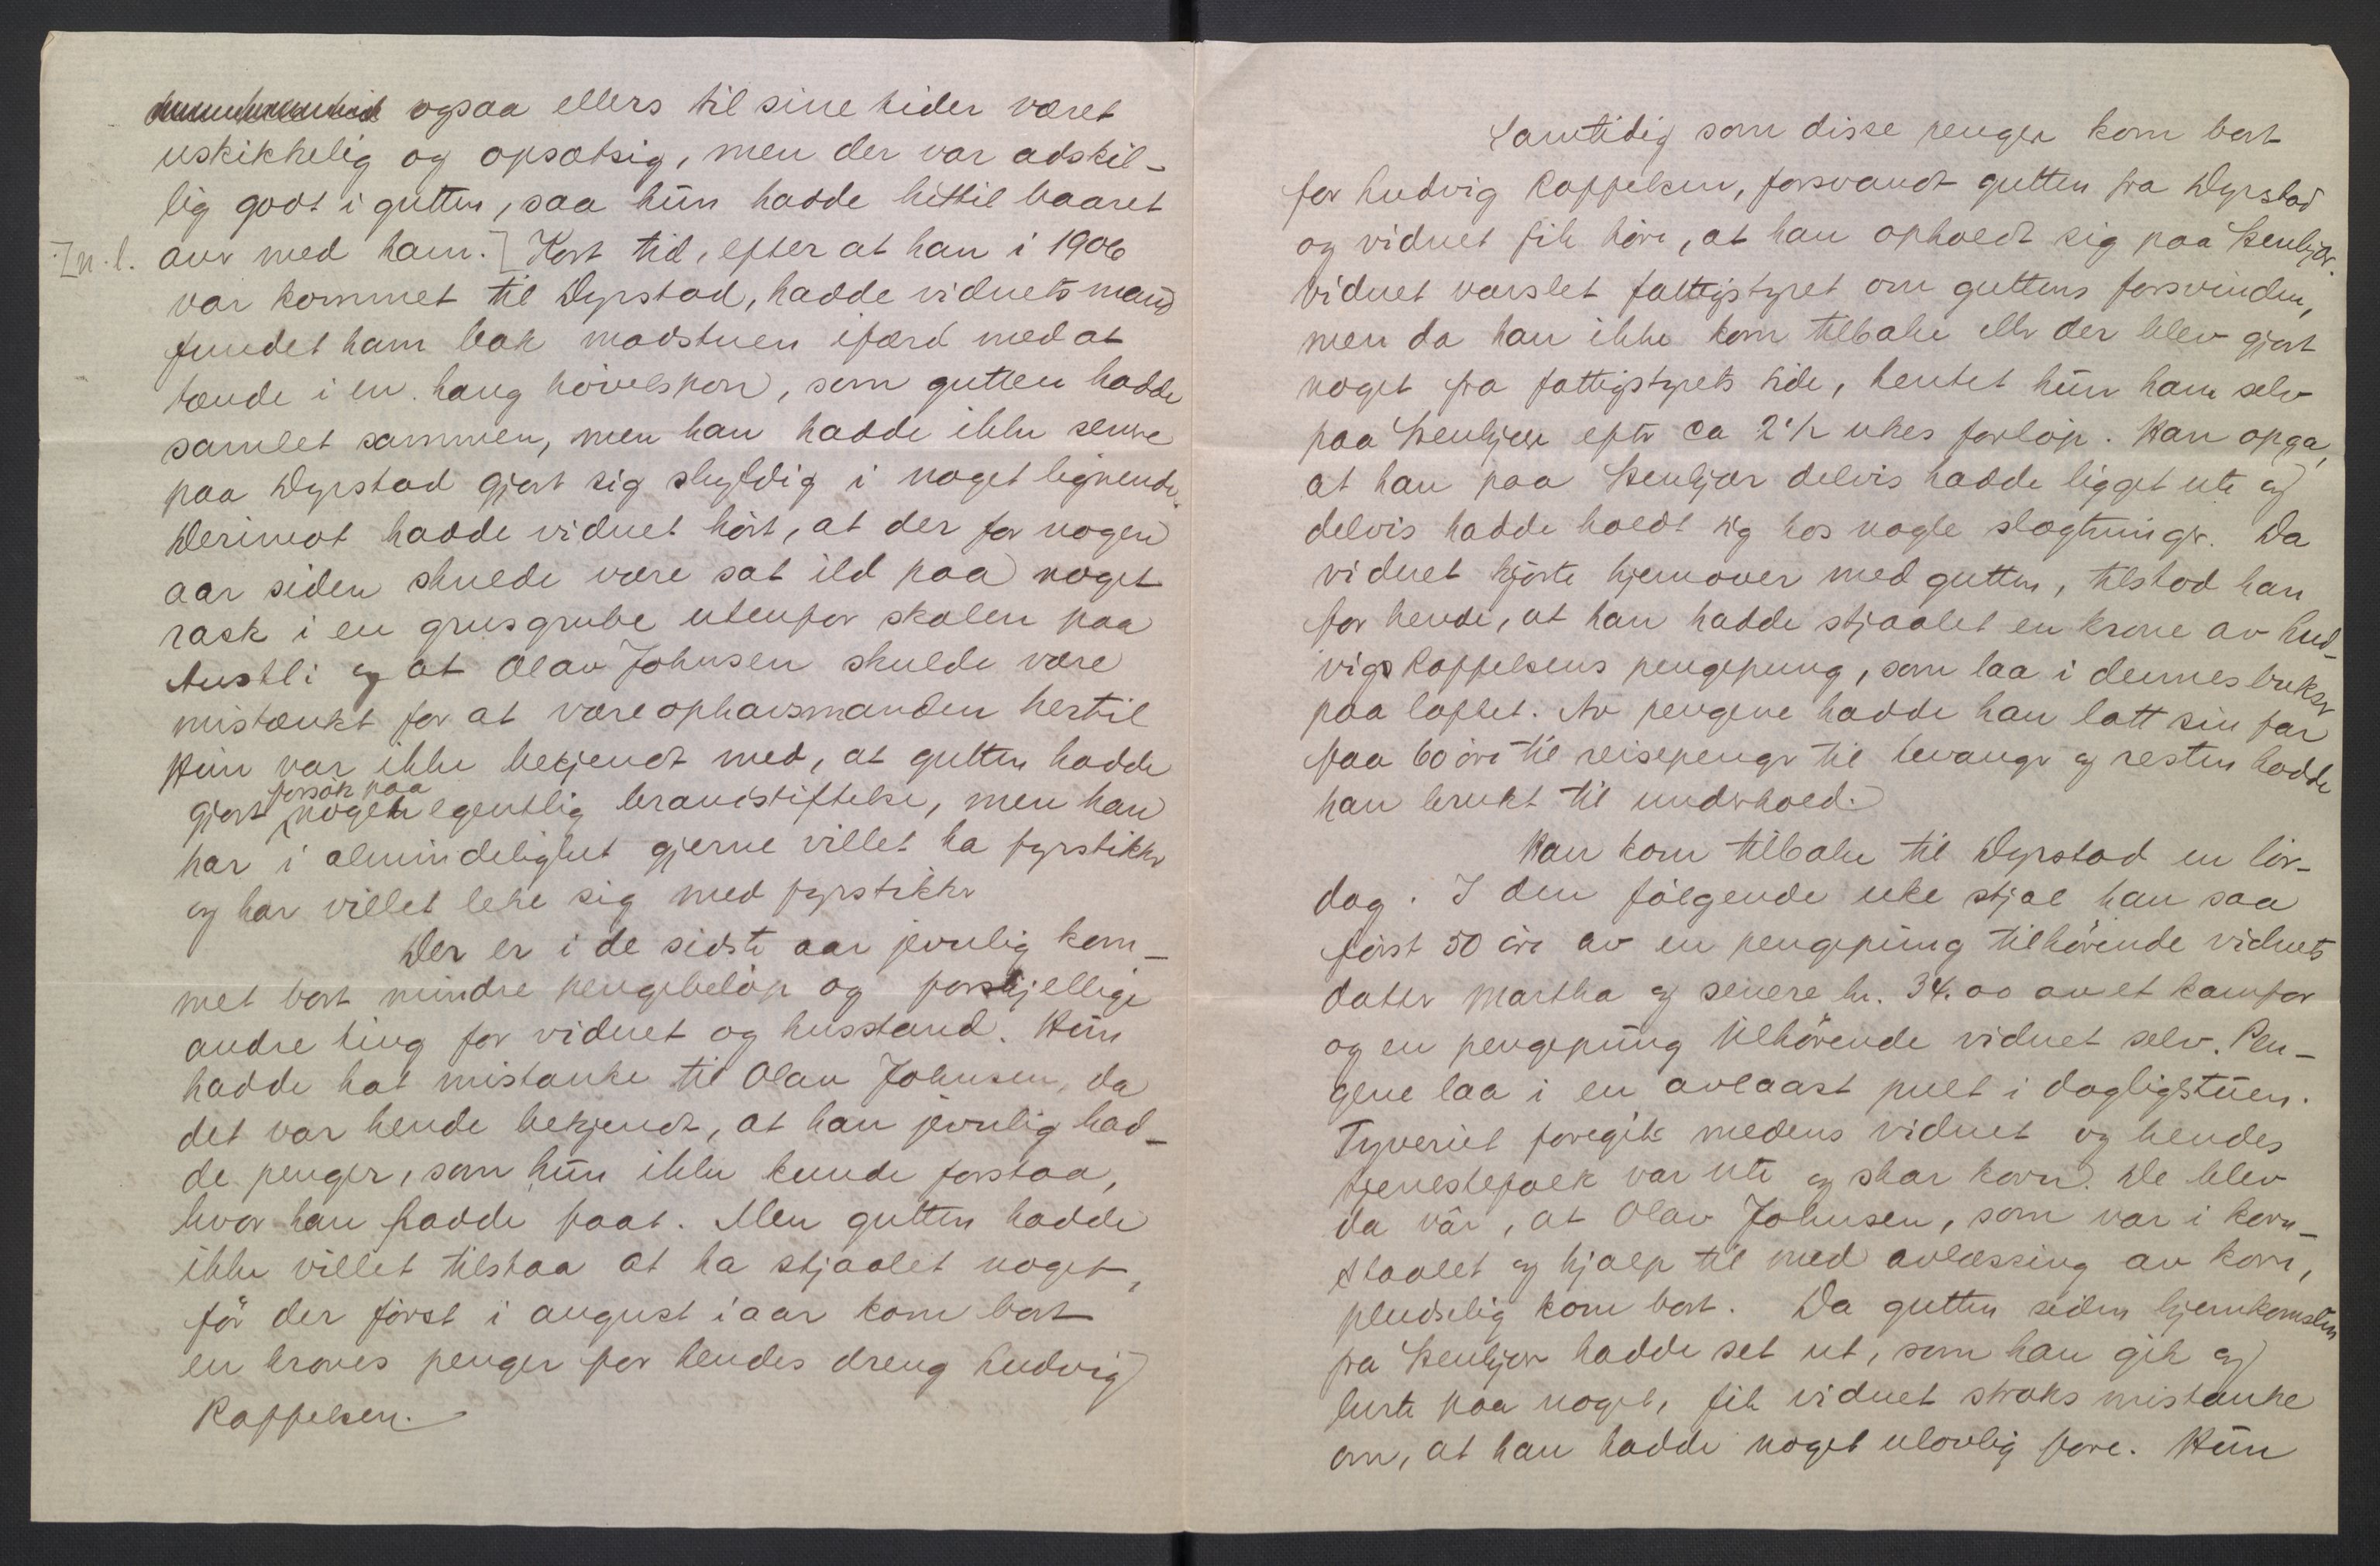 ogsaa ellers til sine tider været
uskikkelig og opsætsig, men der var adskil-
lig godt i gutten, saa hun hadde hittil baaret
[n.l. over med ham.] Kort tid, efter at han i 1906
var kommet til Dyrstad, hadde vidnets mand
fundet ham bak madstuen ifærd med at
tænde i en haug høvelspon, som gutten hadde
samlet sammen, men han hadde ikke senere
paa Dyrstad gjort sig skyldig i noget lignende.
Derimot hadde vidnet hørt, at der for nogen
aar siden skulde være sat ild paa noget
rask i en grusgrube utenfor skolen paa
Austli og at Olav Johnsen skulde være
mistænkt for at være ophavsmanden hertil
Hun var ikke bekjendt med, at gutten hadde
forsøk paa
gjort nogen egentlig brandstiftelse, men han
har i almindelighet gjerne villet ha fyrstikker
og har villet leke sig med fyrstikker
Der er i de sidste aar jevnlig kom-
met bort mindre pengebeløp og forskjellige
andre ting for vidnet og husstand. Hun
hadde hat mistanke til Olav Johnsen, da
det var hende bekjendt, at han jevnlig had-
de penger, som hun ikke kunde forstaa,
hvor han hadde faat. Men gutten hadde
ikke villet tilstaa at ha stjaalet noget,
før der først i august i aar kom bort
en krones penger for hendes dreng Ludvig
Roppelsen.
Samtidig som disse penger kom bort
for Ludvig Roppelsen, forsvandt gutten fra Dyrstad
og vidnet fik høre, at han opholdt sig paa Stenkjær.
Vidnet varslet fattigstyret om guttens forsvinden,
men da han ikke kom tilbake eller der blev gjort
noget fra fattigstyrets side, hentet hun ham selv
paa Stenkjær efter ca 2 1/2 ukes forløp. Han opga,
at han paa Stenkjær delvis hadde ligget ute og
delvis hadde holdt sig hos nogle slægtninger. Da
vidnet kjørte hjemover med gutten, tilstod han
for hende, at han hadde stjaalet en krone av Lud-
vigs Roppelsens pengepung, som laa i dennes bukser
paa loftet. Av pengene hadde han latt sin far
faa 60 øre til reisepenger til Levanger og resten hadde
han brukt til underhold.
Han kom tilbake til Dyrstad en lør-
dag. I den følgende uke stjal han saa
først 50 øre av en pengepung tilhørende vidnets
datter Martha og senere kr. 34.00 av et
og en pengepung tilhørende vidnet selv. Pen-
gene laa i en avlaast pult i dagligstuen.
Tyveriet foregik medens vidnet og hendes
tjenestefolk var ute og skar korn. De blev
da vàr, at Olav Johnsen, som var i korn-
staalet og hjalp til med avlæssing av korn,
pludselig kom bort. Da gutten siden hjemkomsten
fra Stenkjær hadde set ut, som han gik og
lurte paa noget, fik vidnet straks mistanke
om, at han hadde noget ulovlig fore. Hun